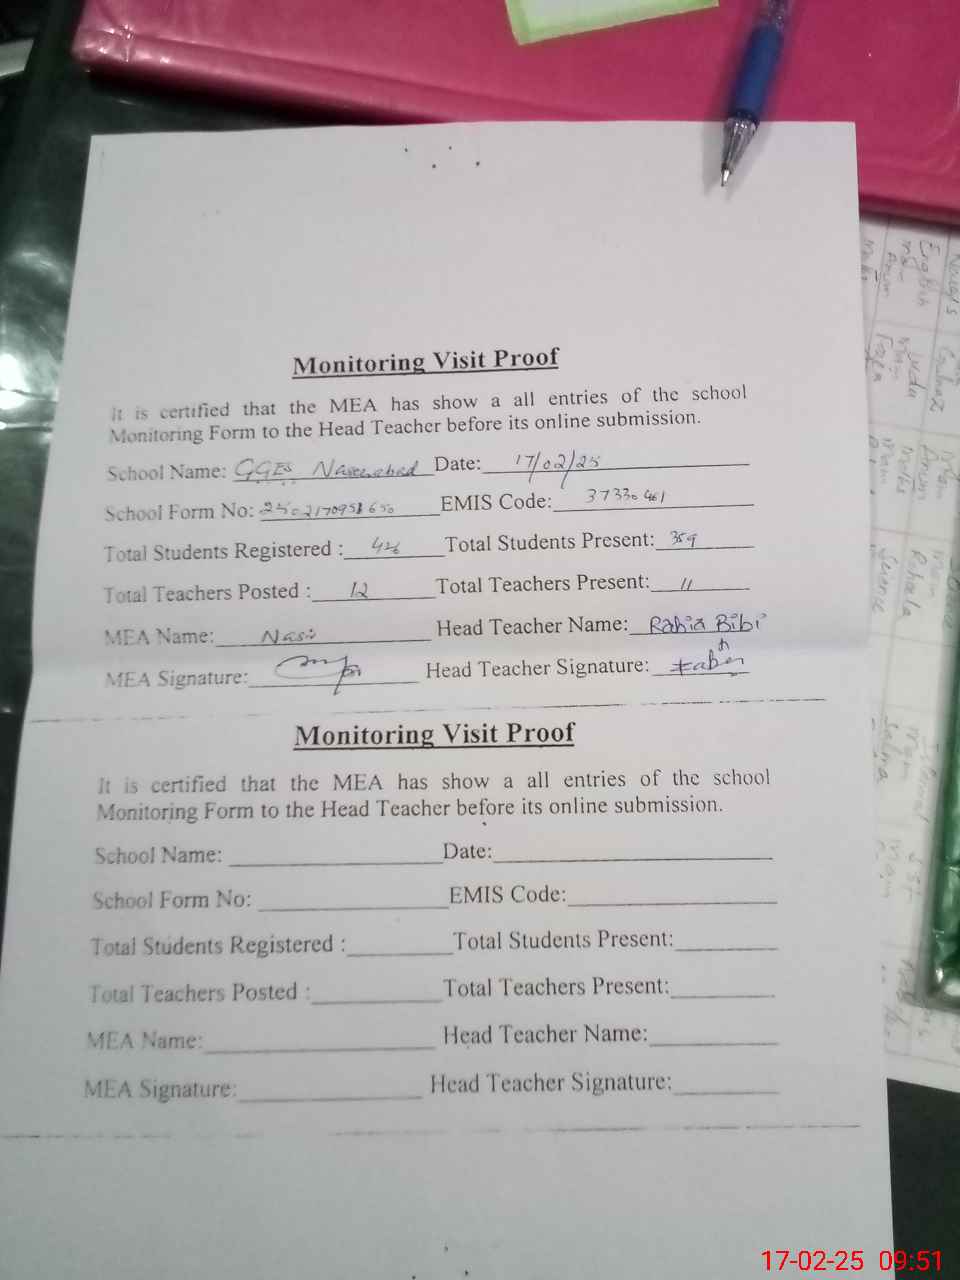 Monitoring Visit Proof
It is certified that the MEA has show a all entries of the school
Monitoring Form to the Head Teacher before its online submission.
School Name: GGES Naseerabad Date: 17/02/25
School Form No: EMIS Code: 37330461
Total Students Registered : Total Students Present: 359
Total Teachers Posted : 12 Total Teachers Present: 11
MEA Name: Nasir Head Teacher Name: Rabia Bibi
MEA Signature: Head Teacher Signature:
Monitoring Visit Proof
It is certified that the MEA has show a all entries of the school
Monitoring Form to the Head Teacher before its online submission.
School Name: Date:
School Form No: EMIS Code:
Total Students Registered : Total Students Present:
Total Teachers Posted : Total Teachers Present:
MEA Name: Head Teacher Name:
MEA Signature: Head Teacher Signature:
17-02-25 09:51